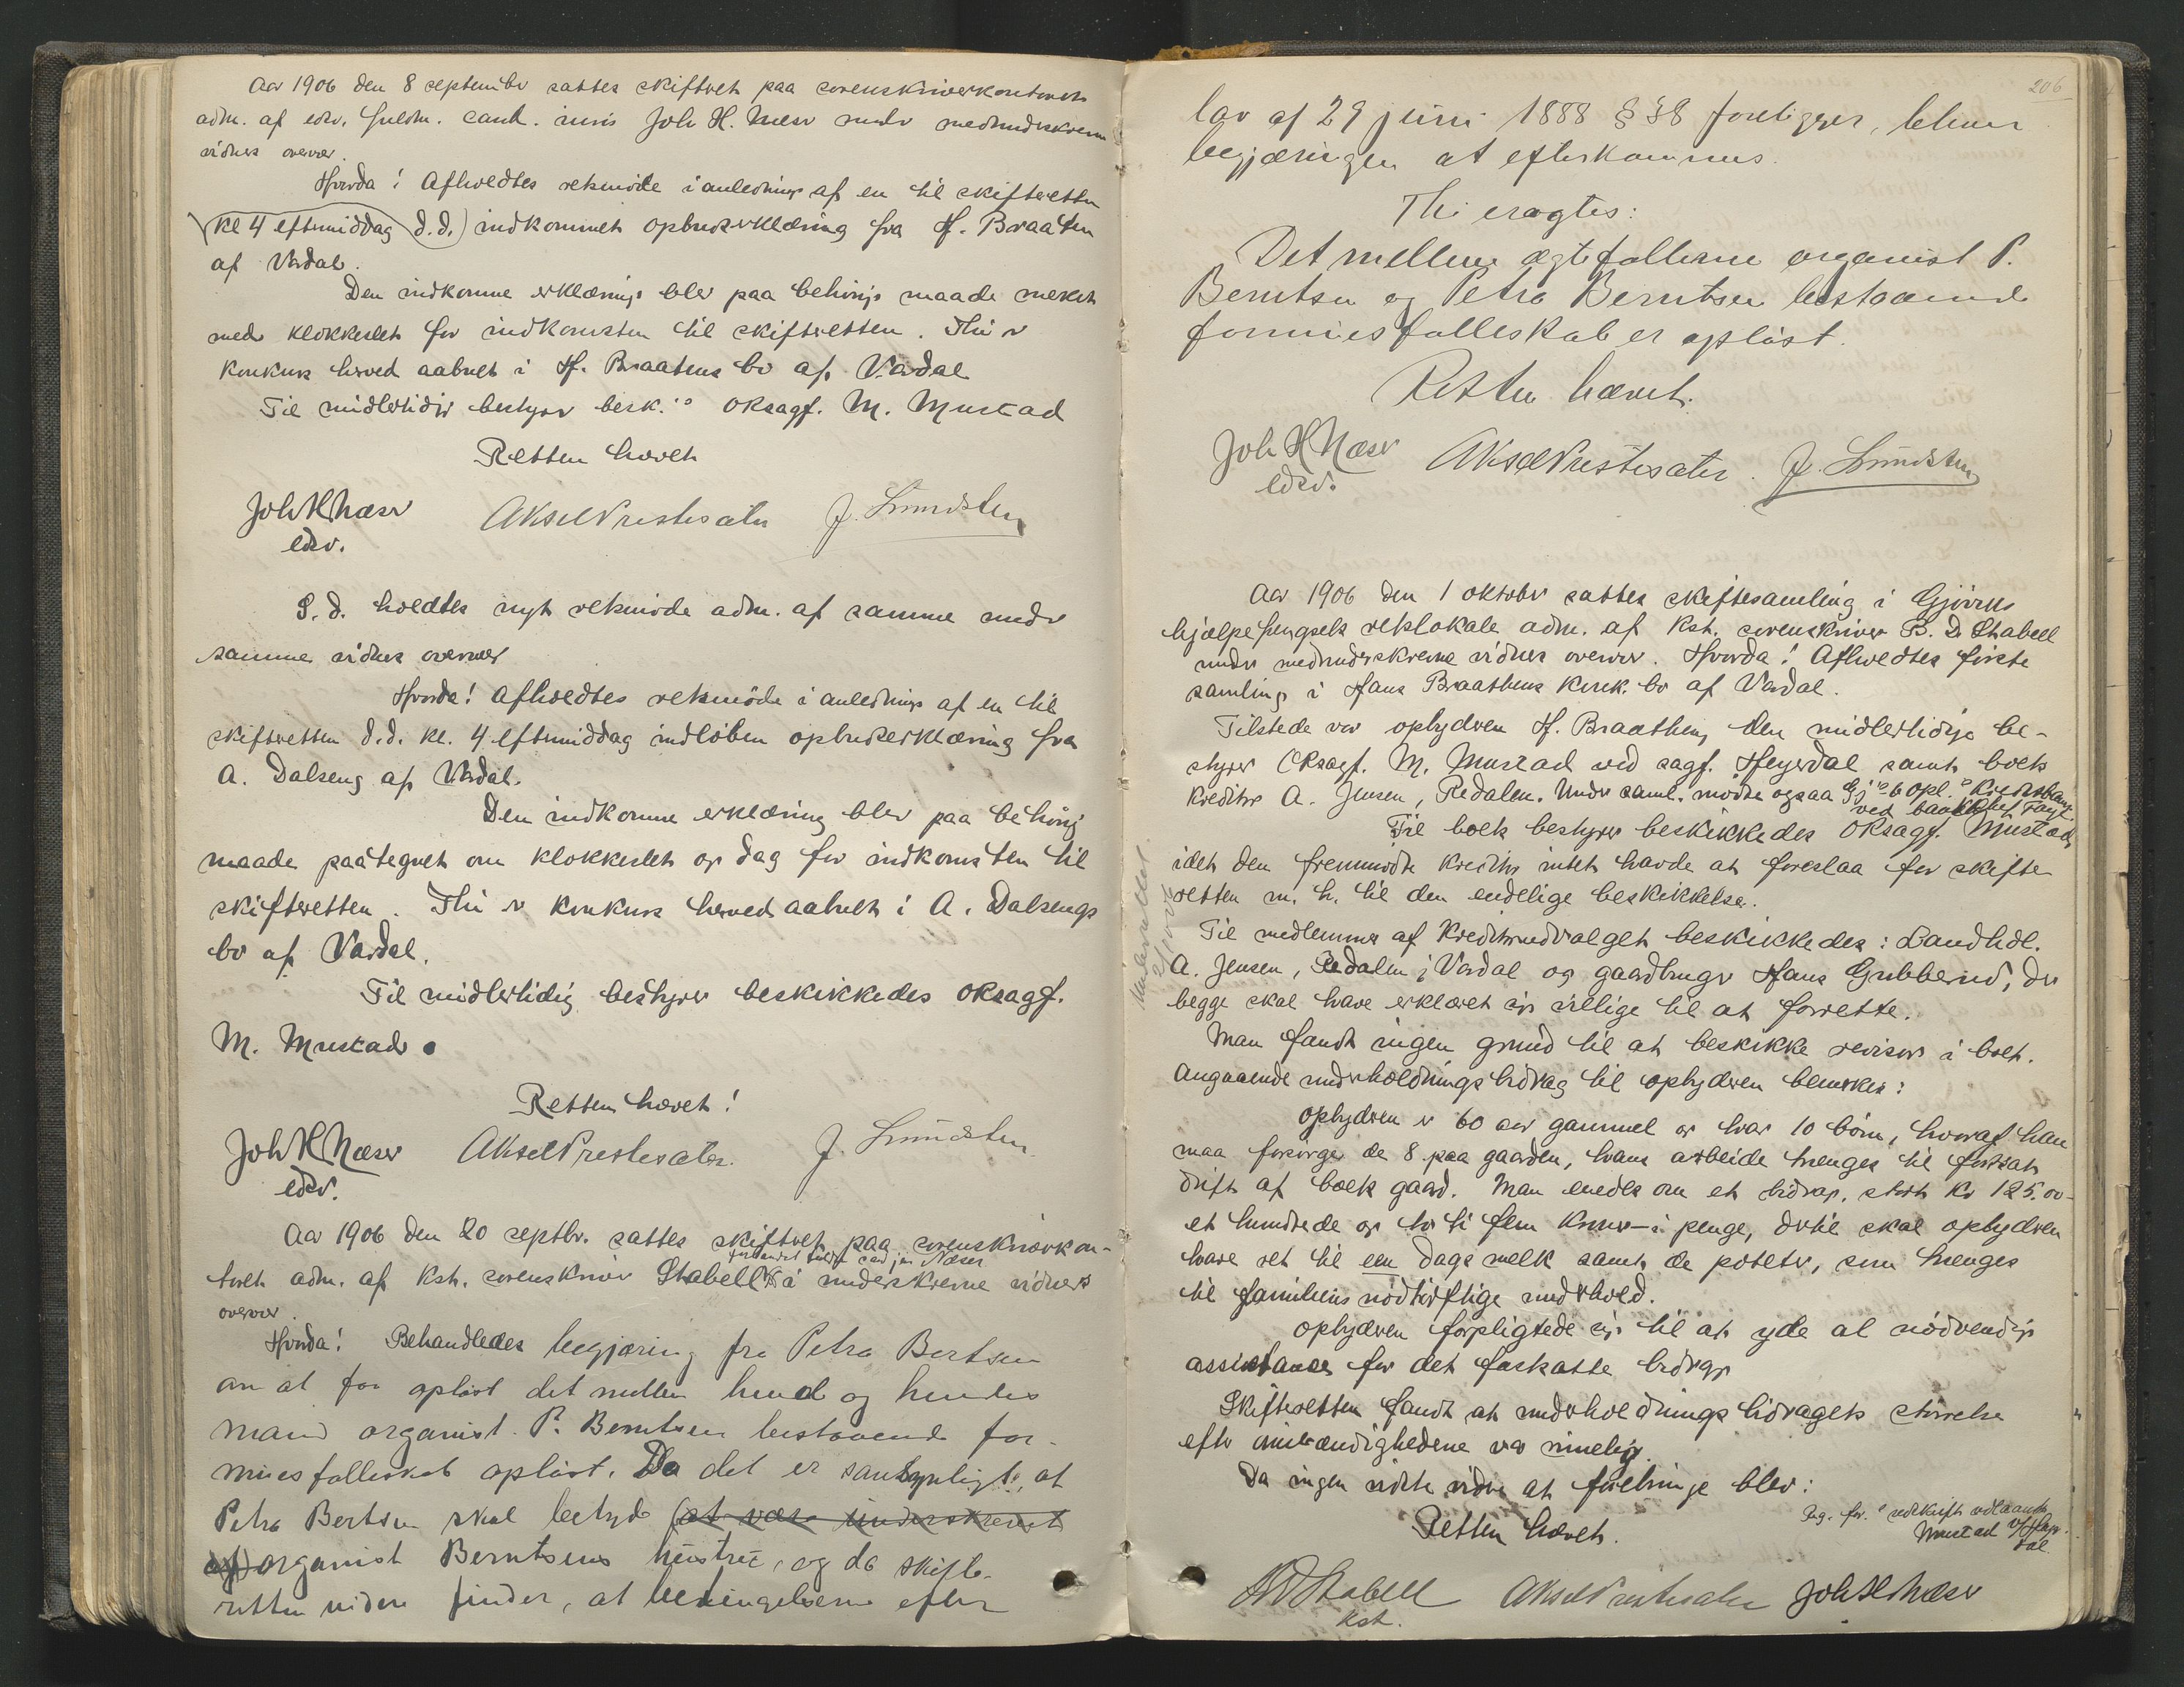 Aar 1906 den 8 september sattes skifteret paa sorenskriverkontoret
adm. af edsv. fuldm. cand. juris Joh H. Næser under medunderskrevne
vidners overvær.
Hvorda! Afholdtes retsmöde i anledning af en til skifteretten
(kl 4 eftermiddag d.d.) indkommet opbudserklæring fra H. Braaten
af Vardal.
Den indkomne erklæring blev paa behörig maade merket
med klokkeslet for indkomsten til skifteretten. Thi er
konkurs herved aabnet i H. Braatens bo af Vardal
Til midlertidig bestyrer besk. oksagf. M. Mustad
Retten hævet
Joh H Næser Aksel Præstesæter J. Lundsten
edsv.
S. d. holdtes nyt retsmöde adm. af samme under
samme vidners overvær
Hvorda! Afholdtes retsmöde i anledning af en til
skifteretten d.d. kl. 4 eftermiddag indlöben opbudserklæring fra
A. Dalseng af Vardal.
Den indkomne erklæring blev paa behörig
maade paategnet om klokkeslet og dag for indkomsten til
skifteretten. Thi er konkurs herved aabnet i A. Dalsengs
bo af Vardal.
Til midlertidig bestyrer beskikkedes oksagf.
M. Mustad.
Retten hævet!
Joh H Næser Aksel Præstesæter J. Lundsten
edsv.
Aar 1906 den 20 septbr. sattes skifteret paa sorenskriverkon-
toret adm. af kst. sorenskriver Stabell i underskrevne vidners
overvær.
Hvorda! Behandledes begjæring fra Petra Bertsen
om at faa oplöst det mellem hende og hendes
mand organist P. Berntsen bestaaende for-
muesfælleskab oplöst. Da det er sandsynligt, at
Petra Bertsen skal betyde (at være underskrevet
af) organist Berntsens hustru, og da skifte-
retten videre finder, at betingelserne efter
206
lov af 29 juni 1888 § 38 foreligger, bliver
begjæringen at efterkommes.
Thi eragtes:
Det mellem ægtefællerne organist P.
Berntsen og Petra Berntsen bestaaende
formuesfælleskab er oplöst.
Retten hævet.
Joh H Næser Aksel Præstesæter J. Lundsten
edsv.
Aar 1906 den 1 oktober sattes skiftesamling i Gjöviks
hjælpefengsels retslokale adm. af kst. sorenskriver B. D Stabell
under medunderskrevne vidners overvær. Hvorda! Afholdtes förste
samling i Hans Braathens konk. bo af Vardal.
Tilstede var opbyderen H. Braathen, den midlertidige be-
styrer Oksagf. M. Mustad ved sagf. Heyerdal samt boets
kreditor A. Jensen, Redalen. Under saml. mödte ogsaa Gj. & Opl. Kreditbank
ved bankchef
Til boets bestyrer beskikkedes Oksagf. Mustad,
idet den fremmödte kreditor intet havde at foreslaa for skifte-
retten m. h. til den endelige beskikkelse.
Til medlemmer af kreditorudvalget beskikkedes: Landhdl.
A. Jensen, Redalen i Vardal og gaardbruger Hans Grubberud, der
begge skal have erklæret sig villige til at forrette.
Man fandt ingen grund til at beskikke revisor i boet.
Angaaende underholdningsbidrag til opbyderen bemerkes:
Opbyderen er 60 aar gammel og har 10 börn, hvoraf han
maa forsörge de 8 paa gaarden, hans arbeide trenges til fortsat
drift af boets gaard. Man enedes om et bidrag, stort kr 125.00 -
et hundrede og tyve fem kroner - i penge, dertil skal opbyderen
have ret til een dags melk samt de poteter, som trenges
til familiens nödtörftige underhold.
Opbyderen forpligtede sig til at yde al nödvendig
assistance for det fastsatte bidrag
Skifteretten fandt at underholdningsbidragets störrelse
efter omstændighederne var rimelig.
Da ingen vidste videre at frembringe blev:
Retten hævet.
Reg. for udskrift vedtaaende
Mustad v/ Heyer
dal
B D Stabell Aksel Præstesæter Joh H Næser
kst.